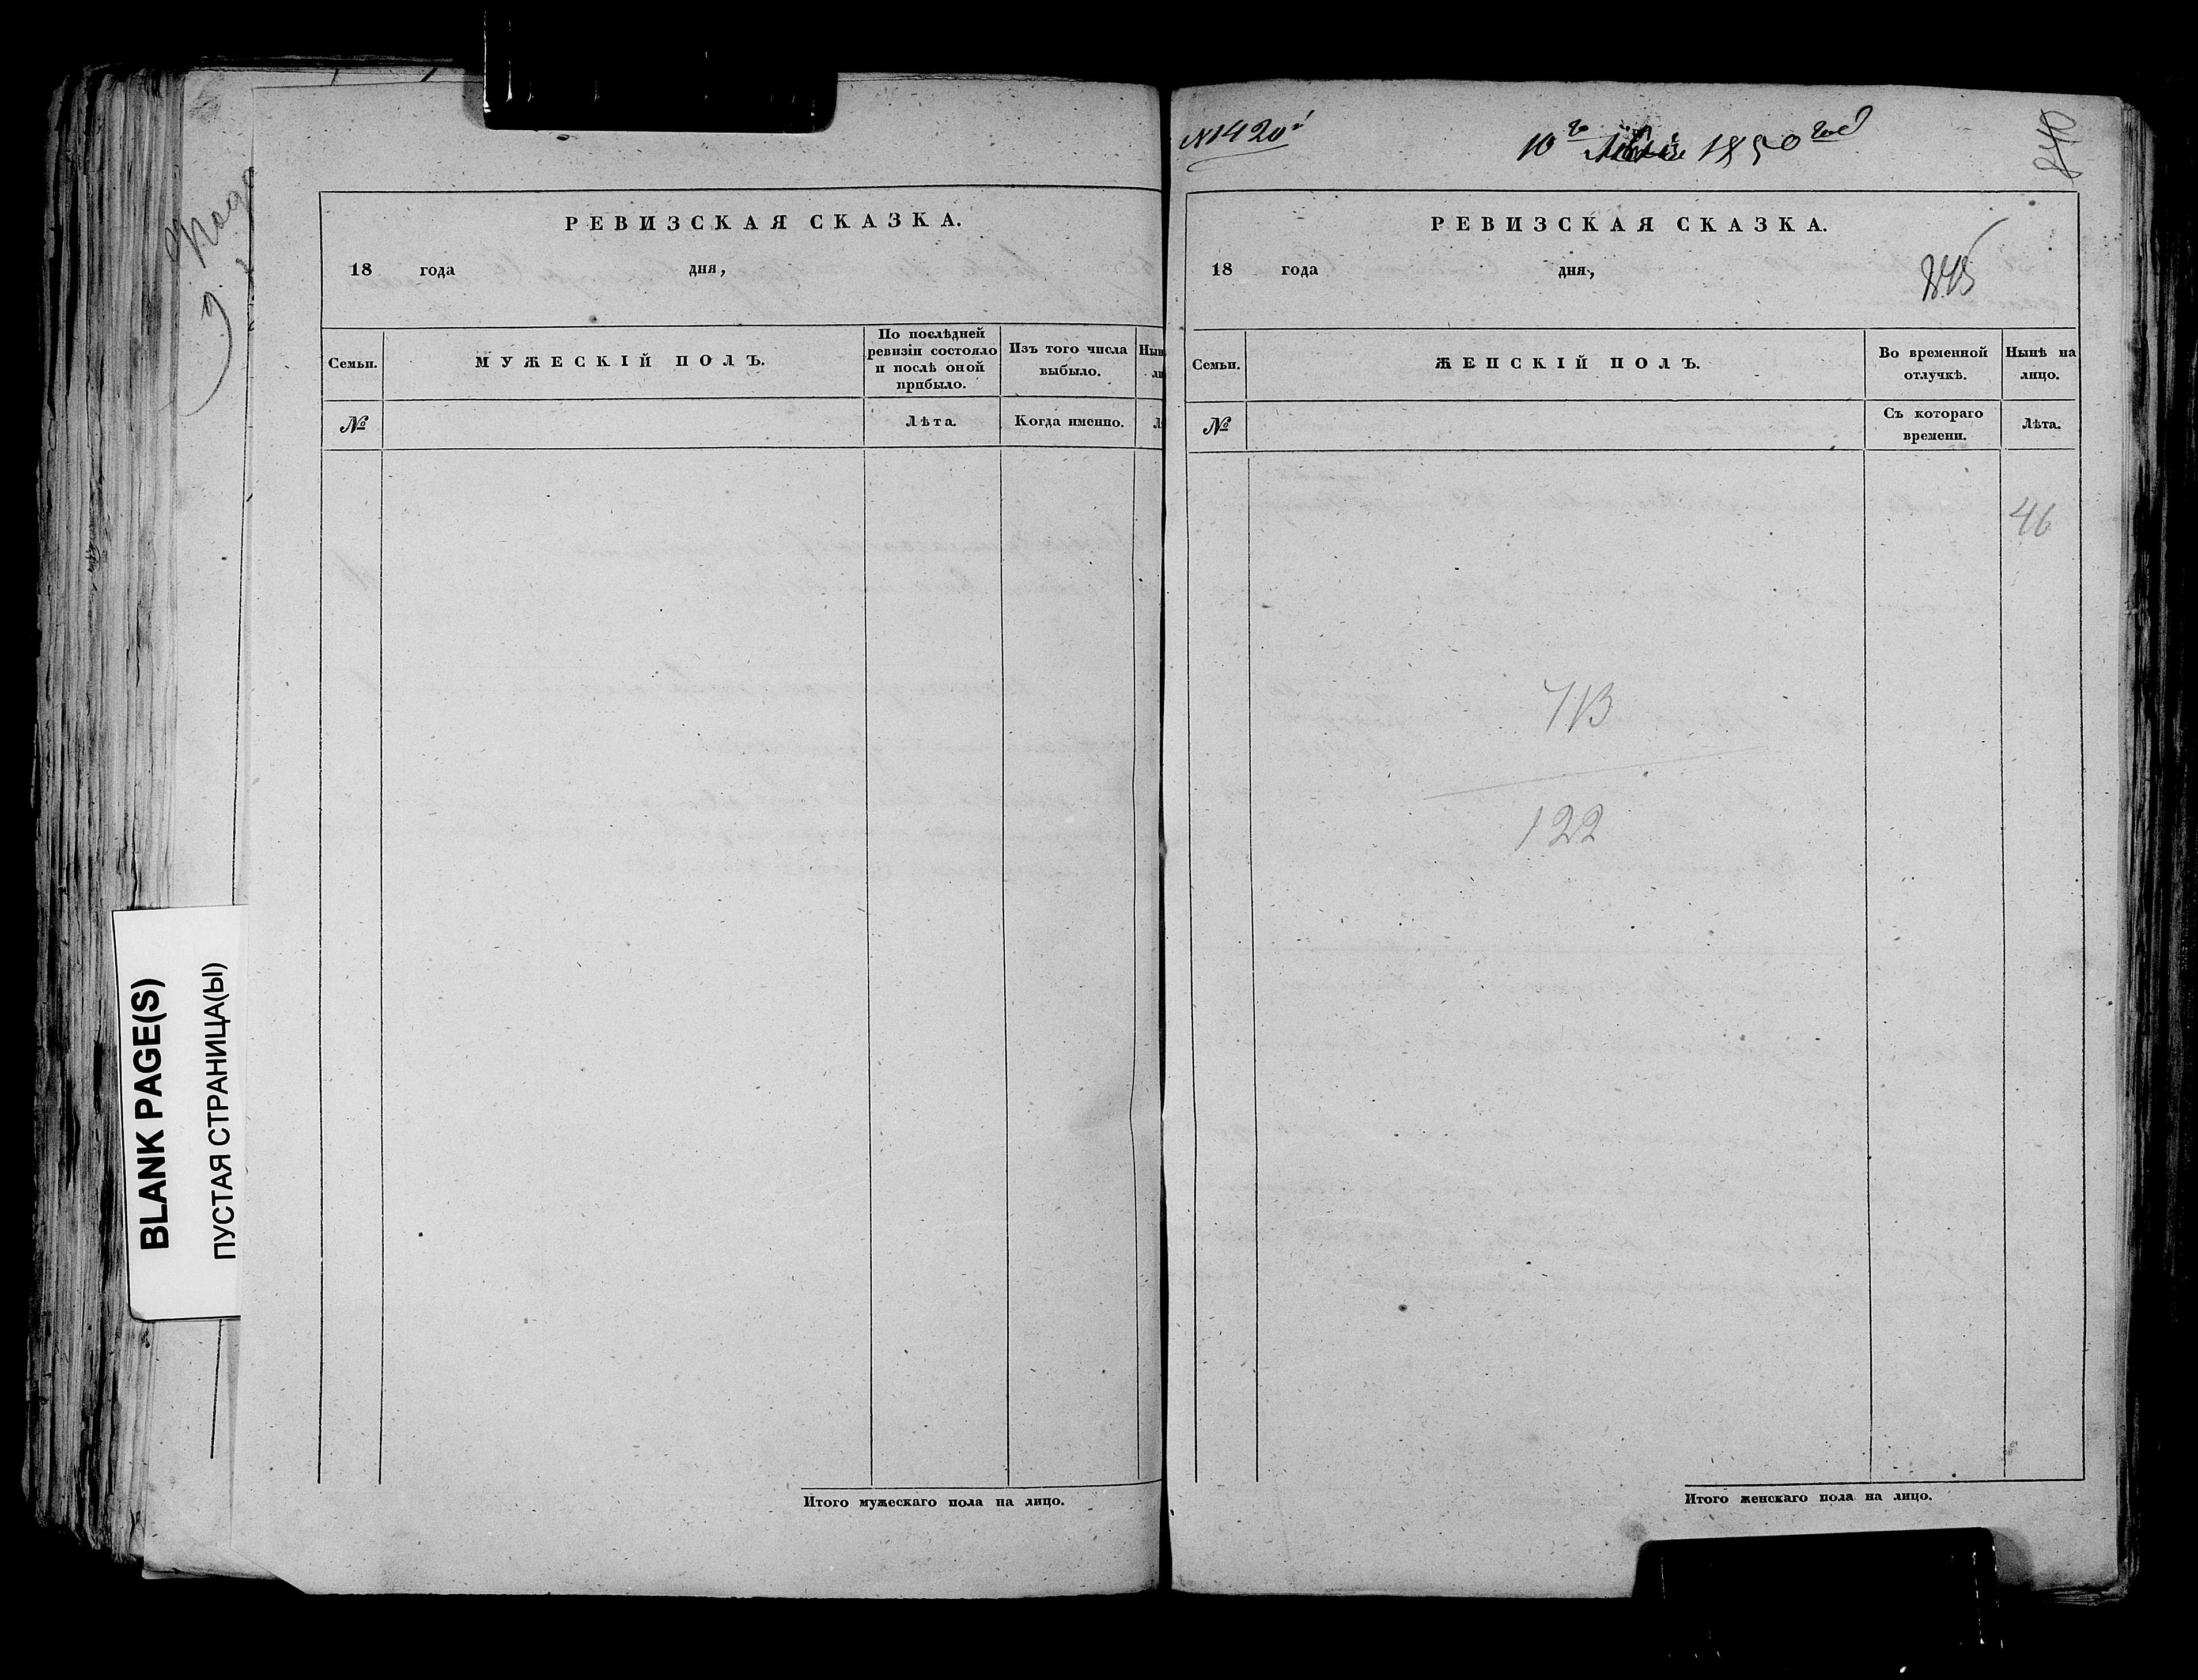 BLANK PAGE(S)
ПУСТАЯ СТРАНИЦА(Ы)
РЕВИЗСКАЯ СКАЗКА.
18 года дня,
Семьи.
МУЖЕСКІЙ ПОЛЪ.
По послѣдней
ревизіи состояло
и послѣ оной
прибыло.
Изъ того числа
выбыло.
№
Лѣта.
Когда именно.
Итого мужескаго пола на лицо.
№ 1420
10го 1850 год
840
РЕВИЗСКАЯ СКАЗКА.
18 года дня,
845
Семьи.
ЖЕНСКІЙ ПОЛЪ.
Во временной
отлучкѣ.
Нынѣ на
лицо.
№
Съ котораго
времени.
Лѣта.
46
713
122
Итого женскаго пола на лицо.